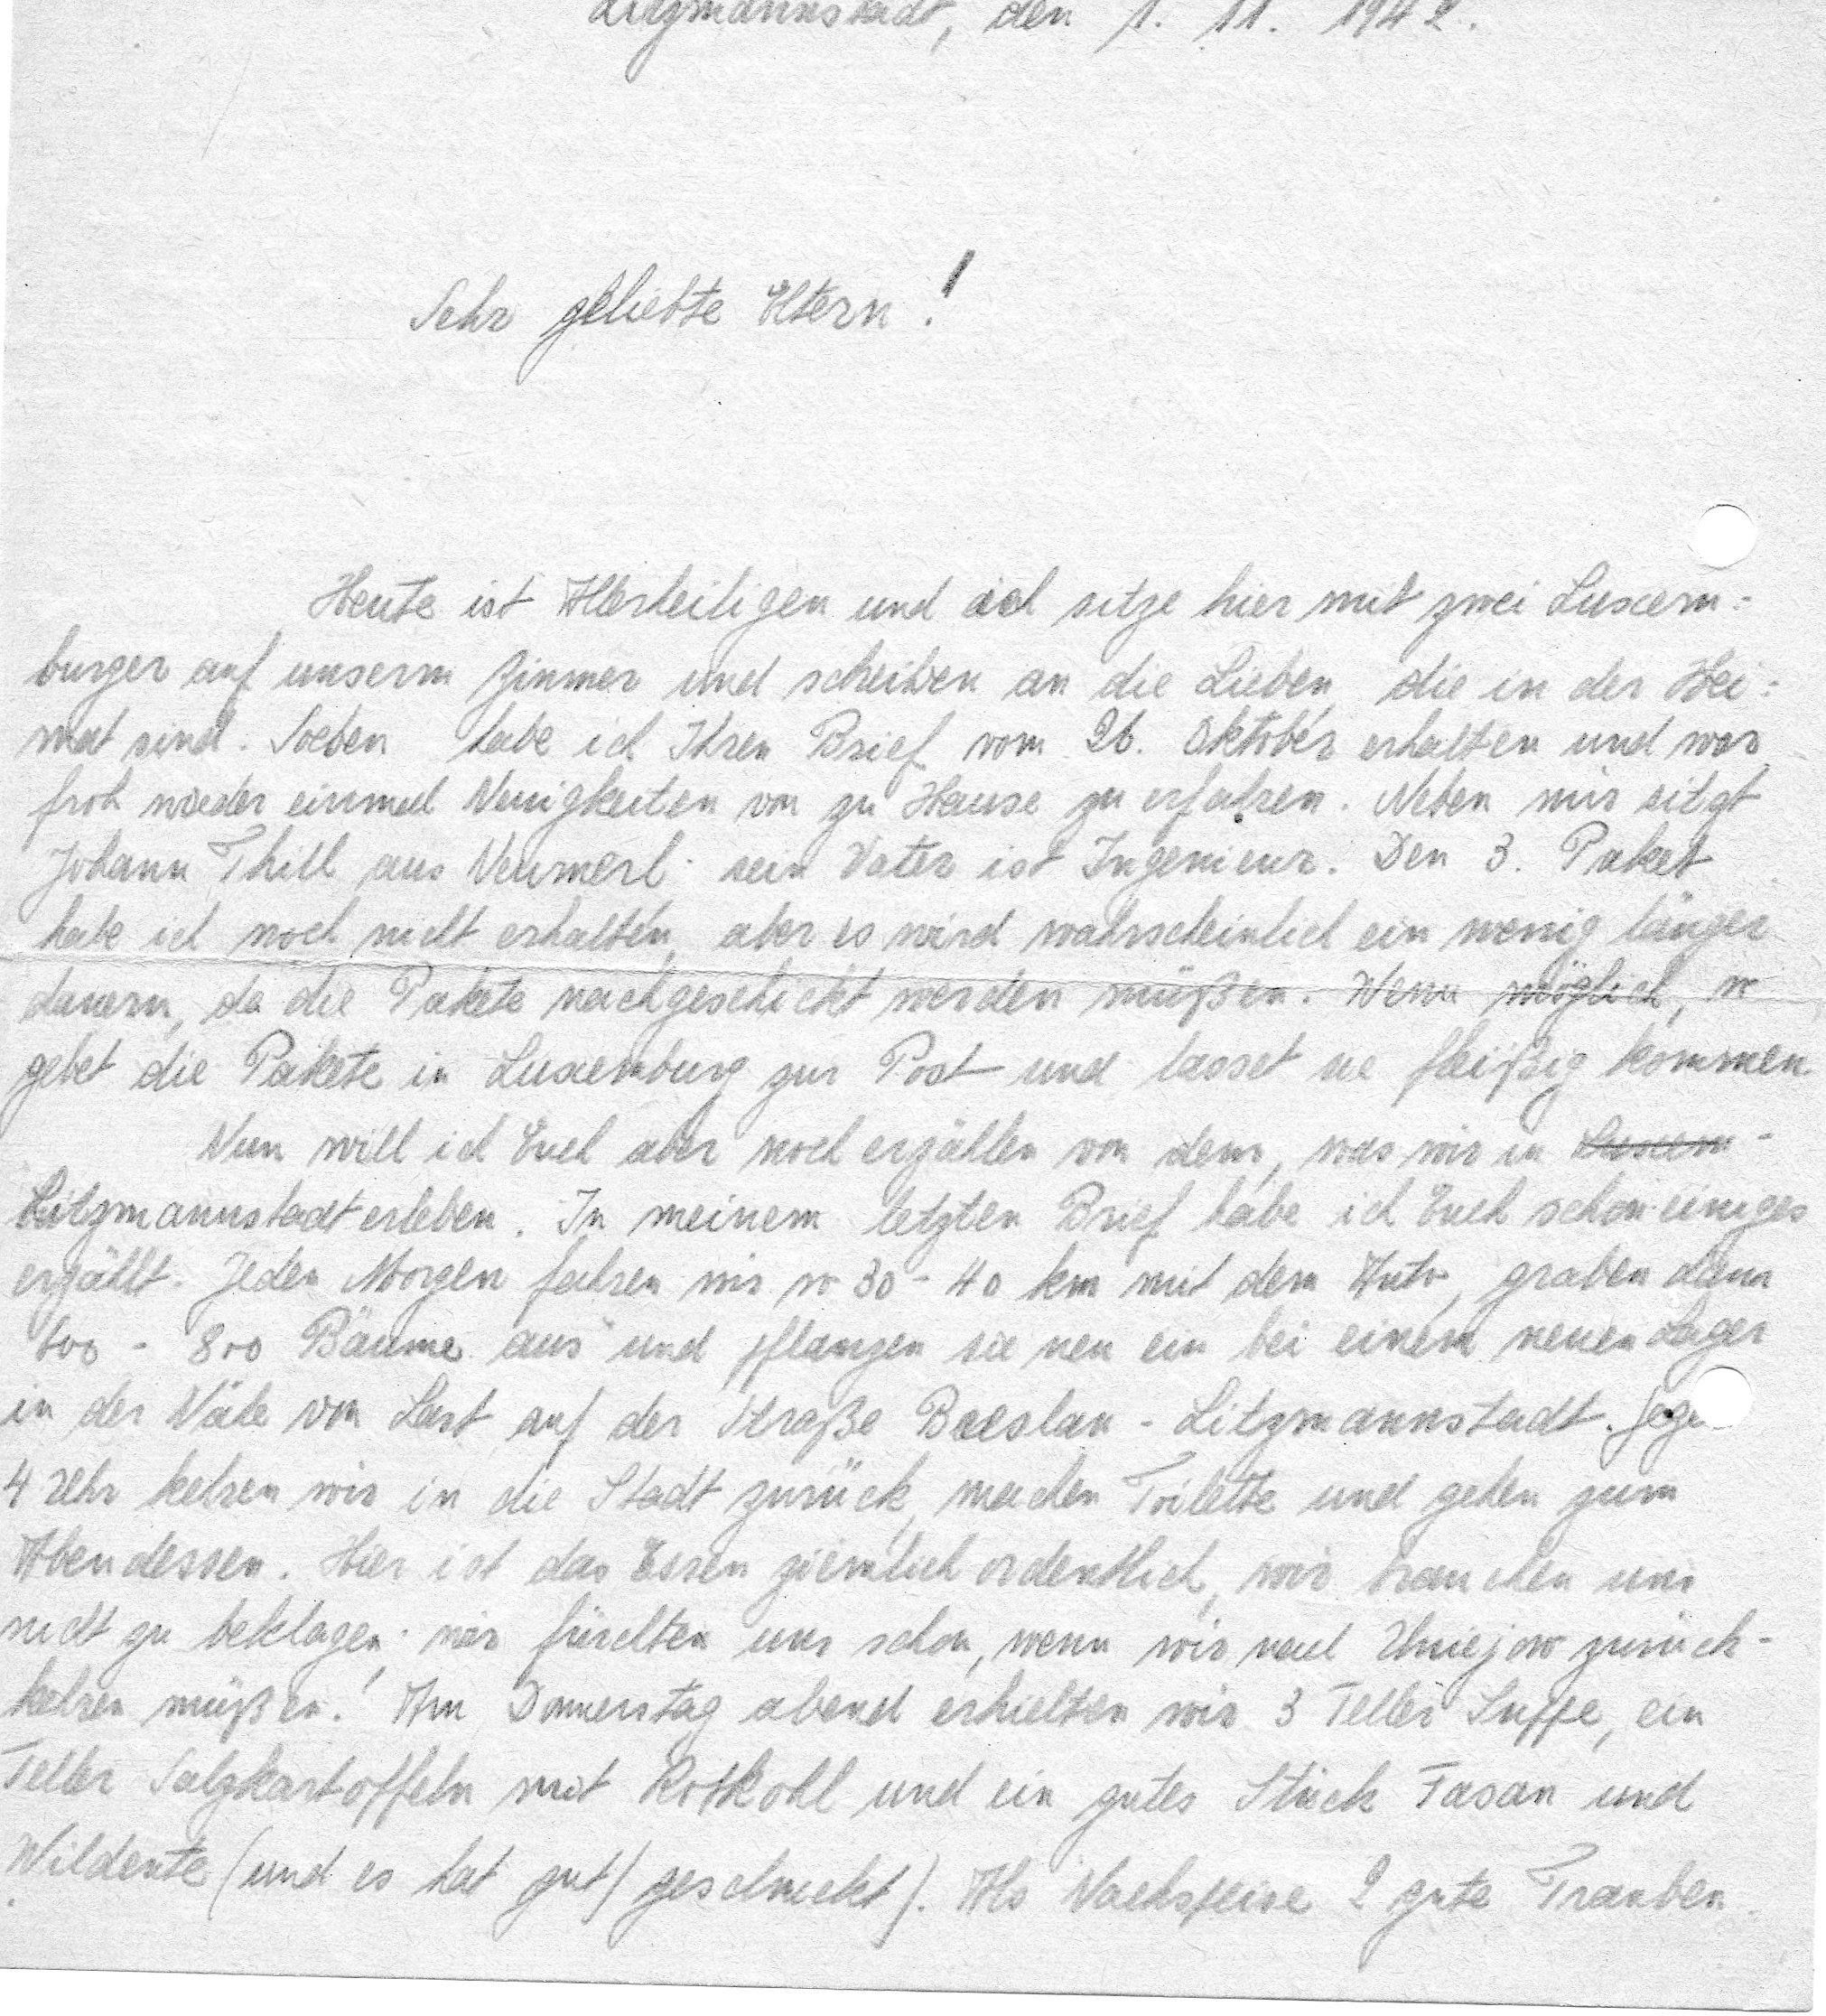 Litzmannstadt, den 1. 11. 1942.
Sehr geliebte Eltern!
Heute ist Allerheiligen und ich sitze hier mit zwei Luxem=
burger auf unserm Zimmer und schreiben an die Lieben, die in der Hei=
mat sind. Soeben habe ich Ihren Brief vom 26. Oktober erhalten und war
froh wieder einmal Neuigkeiten von zu Hause zu erfahren. Neben mir sitzt
Johann Thill aus Neumerl; sein Vater ist Ingenieur. Den 3. Paket
habe ich noch nicht erhalten, aber es wird wahrscheinlich ein wenig länger
dauern, da die Pakete nachgeschickt werden müßen. Wenn möglich, so
gebet die Pakete in Luxemburg zur Post und lasset sie fleißig kommen.
Nun will ich Euch aber noch erzählen von dem, was wir in Luxem-
Litzmannstadt erleben. In meinem letzten Brief habe ich Euch schon einiges
erzählt. Jeden Morgen fahren wir so 30 - 40 km mit dem Auto, graben dann
600 - 800 Bäume aus und pflanzen sie neu ein bei einem neuen Lager
in der Nähe von Last auf der Straße Breslau - Litzmannstadt. Gegen
4 Uhr kehren wir in die Stadt zurück, machen Toilette und gehen zum
Abendessen. Hier ist das Essen ziemlich ordentlich, wir brauchen uns
nicht zu beklagen; wir fürchten uns schon, wenn wir nach Uniejow zurück-
kehren müßen! Am Donnerstag abend erhielten wir 3 Teller Suppe, ein
Teller Salzkartoffeln mit Rotkohl und ein gutes Stück Fasan und
Wildente (und es hat gut geschmeckt). Als Nachspeise 2 gute Trauben.